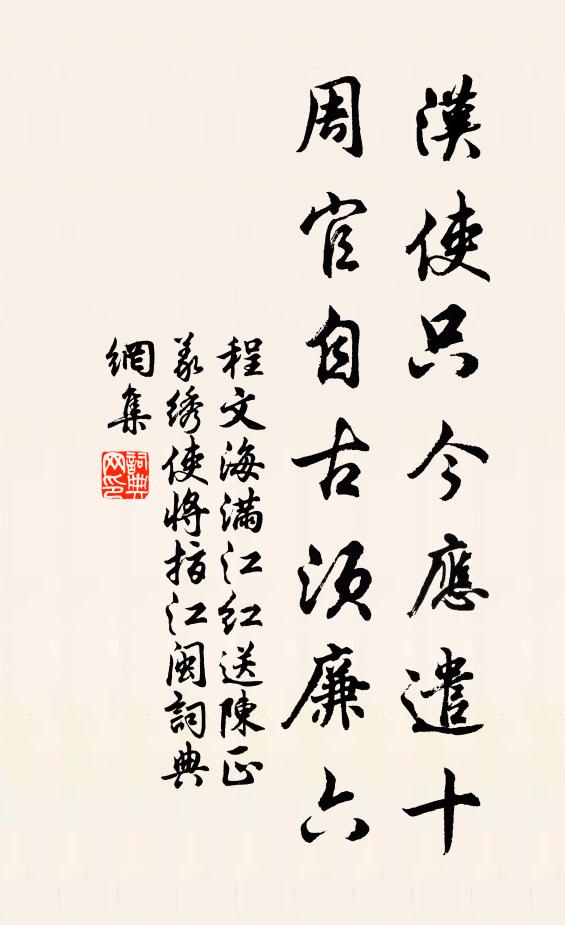 漢使只今應遣十
周官自古須廉六
程文海滿江紅送陳正
義綉使將指江閩詞典
網集
詞典網印